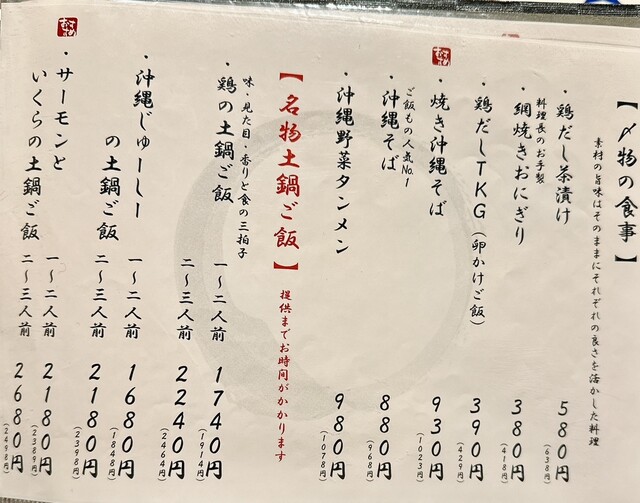 【〆物の食事】
素材の旨味はそのままにそれぞれの良さを活かした料理
・鶏だし茶漬け 580円
(638円)
料理長のお手製
・網焼きおにぎり 380円
(418円)
・鶏だしTKG(卵かけご飯) 390円
(429円)
・焼き沖縄そば 930円
(1023円)
ご飯もの人気No.1
・沖縄そば 880円
(968円)
・沖縄野菜タンメン 980円
(1078円)
【名物土鍋ご飯】提供までお時間がかかります
味・見た目・香りと食の三拍子
・鶏の土鍋ご飯 一〜二人前 1740円
(1914円)
二〜三人前 2240円
(2464円)
・沖縄じゅーしー
の土鍋ご飯
一〜二人前 1680円
(1848円)
二〜三人前 2180円
(2398円)
・サーモンと
いくらの土鍋ご飯
一〜二人前 2180円
(2389円)
二〜三人前 2680円
(2498円)